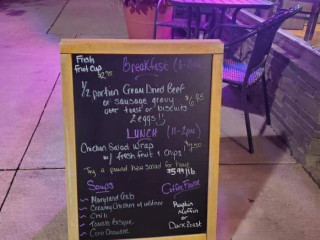 Fresh
Fruit Cup
$2.95
Breakfast (8-11am)
1/2 portion Cream Dried Beef
or sausage gravy
over toast or biscuits $6.95
2 eggs!!
LUNCH (11-2pm)
Chicken Salad Wrap
w/ fresh fruit + chips $7.50
Try a pound
salad for
/lb
Soups
~ Maryland Crab
~ Creamy Chicken w/
~ Chili
~ Tomato Bisque
~ Corn Chowder
Coffee Flavor
Pumpkin
Muffin
or
Dark Roast